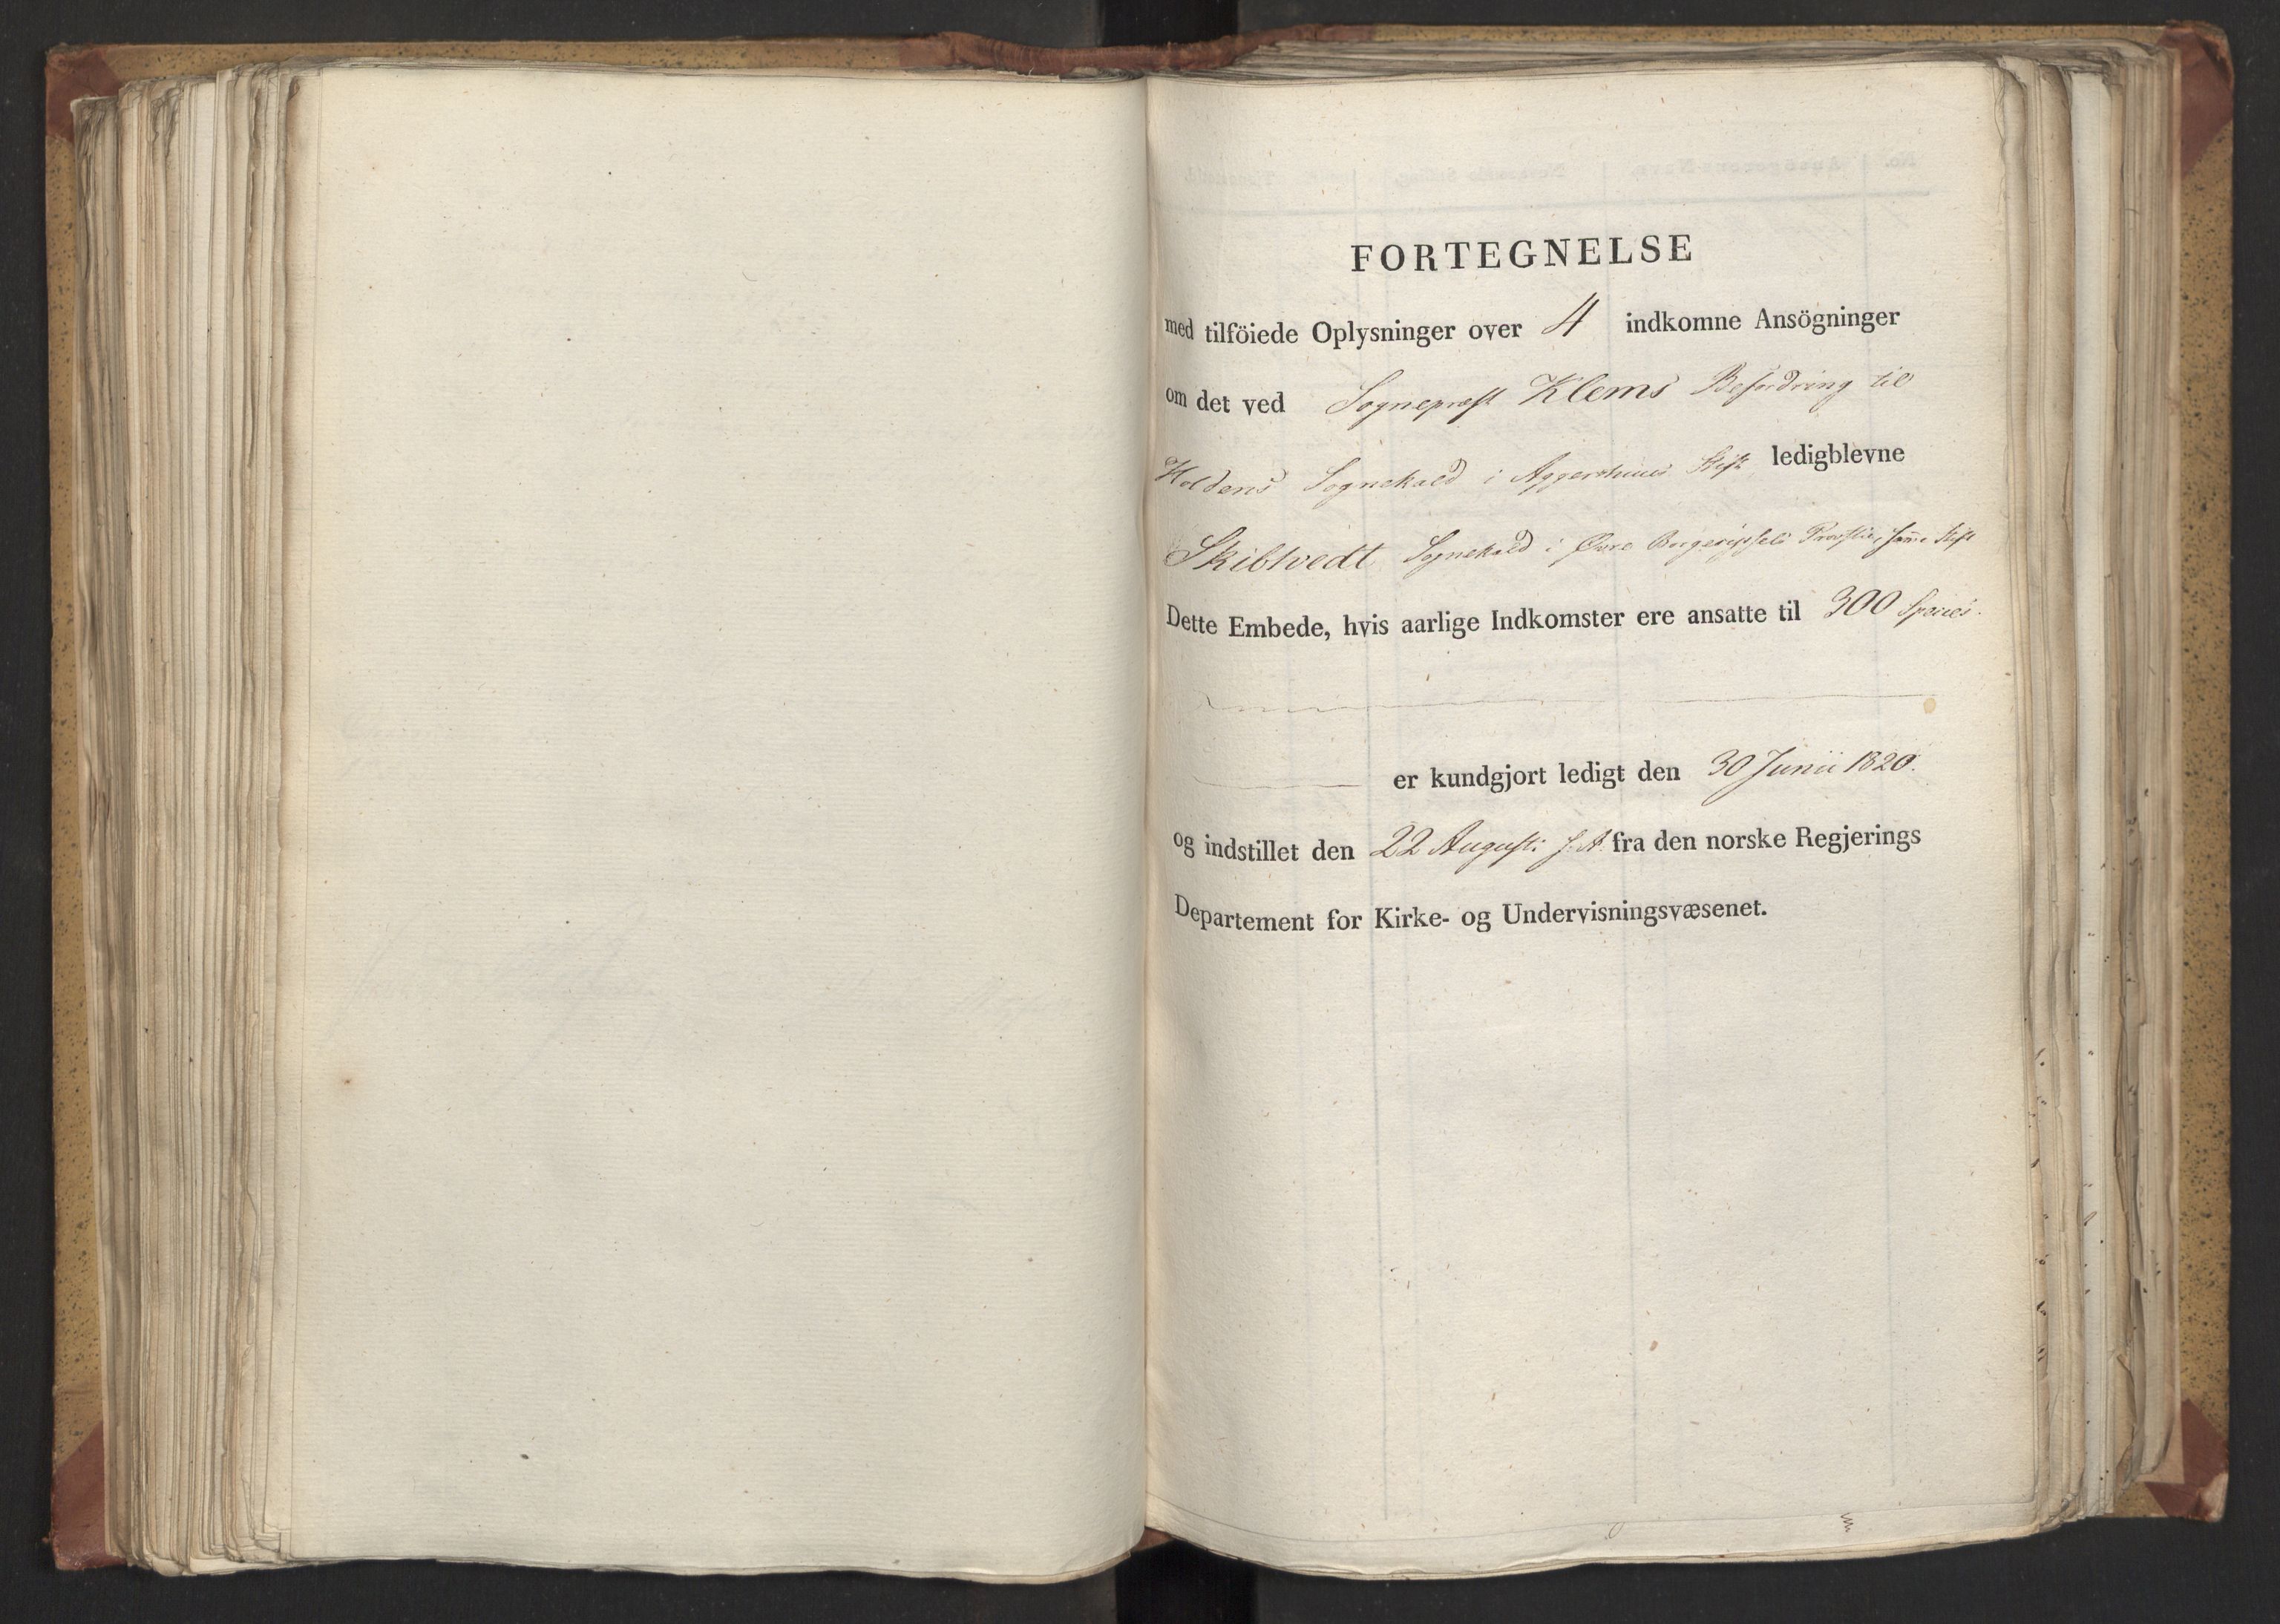 FORTEGNELSE
med tilföiede Oplysninger over 4 indkomne Ansögninger
om det ved Sognepræst Klems Befordring til
Holdens Sognekald i Aggershuus Stift ledigblevne
Skibtvedt Sognekald i Øvre Borgesyssels Provstie, samme Stift
Dette Embede, hvis aarlige Indkomster ere ansatte til 300 Species.
er kundgjort ledigt den 30 Junii 1820.
og indstillet den 22 Augusti s. A. fra den norske Regjerings
Departement for Kirke- og Undervisningsvæsenet.